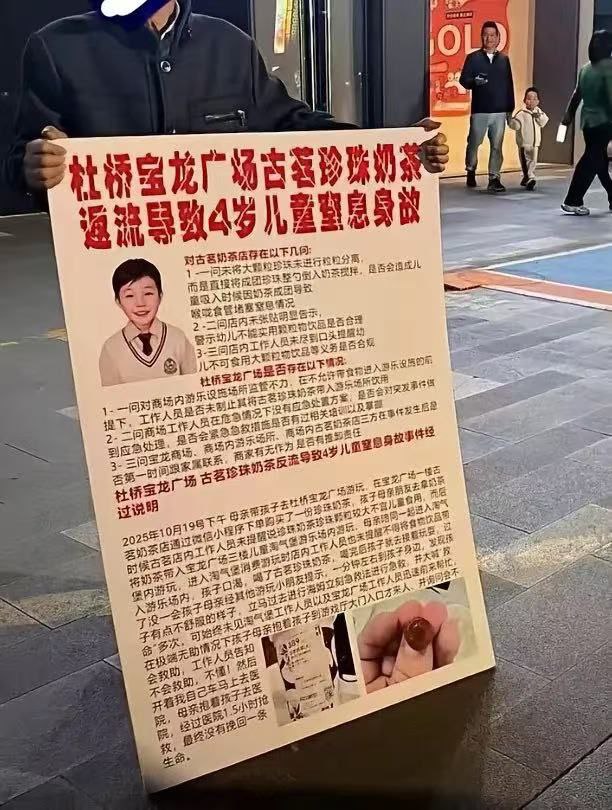 GOLD
杜桥宝龙广场古茗珍珠奶茶
返流导致4岁儿童窒息身故
对古茗奶茶店存在以下几问:
1-一问未将大颗粒珍珠未进行粒粒分离,
而是直接将成团珍珠整勺倒入奶茶搅拌，是否会造成儿
童吸入时候因奶茶成团导致
喉咙食管堵塞窒息情况
2-二问店内未张贴明显告示,
警示幼儿不能实用颗粒物饮品是否合理
3-三问店内工作人员未尽到口头提醒幼
儿不可食用大颗粒物饮品等义务是否合规
杜桥宝龙广场是否存在以下情况:
1-一问对商场内游乐设施场所监管不力，在不允许带食物进入游乐设施的前
提下，工作人员是否未制止其将古茗珍珠奶茶带入游乐场所饮用
2-二问商场工作人员在应急情况下没有应急处置方案，是否会对突发事件做
到应急处理，是否会紧急急救措施是否有过相关培训以及掌握
3-三问宝龙商场、商场内游乐场所、商场内古茗奶茶店三方在事件发生后是
否第一时间跟家属联系，商家有无作为 是否有推卸责任
杜桥宝龙广场 古茗珍珠奶茶反流导致4岁儿童窒息身故事件经
过说明
2025年10月19号下午 母亲带孩子去杜桥宝龙广场游玩，在宝龙广场一楼古
茗奶茶店通过微信小程序下单购买了一份珍珠奶茶，孩子母亲朋友去拿奶茶
时候古茗店内工作人员未提醒说珍珠奶茶珍珠颗粒较大不宜儿童食用，而后
将奶茶带入宝龙广场三楼儿童淘气堡游乐场内游玩，母亲陪同一起进入淘气
堡内游玩，进入淘气堡消费游玩时店内工作人员也未提醒不得将食物饮品带
入游乐场内，孩子口渴，喝了古茗珍珠奶茶，喝完后孩子就去接着玩耍，过
了没一会孩子母亲经其他游玩小朋友提示，一分钟左右到孩子身边，发现孩
子有点不舒服的样子，立马过去进行海姆立刻急救法进行急救，并大喊 救
命"多次，可始终未见淘气堡工作人员以及宝龙广场工作人员迅速前来帮忙，
在极端无助情况下孩子母亲抱着孩子到游戏厅大门入口才来人，并询问会不
会救助，工作人员告知
不会救助，不懂！然后
开着我自己车马上去医
院，母亲抱着孩子去医
院，经过医院1.5小时抢
救，最终没有挽回一条
生命。